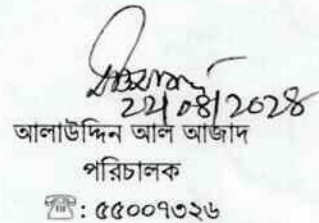 ২২/০৪/২০২৪
আলাউদ্দিন আল আজাদ
পরিচালক
☎: ৫৫০০৭৩২৬